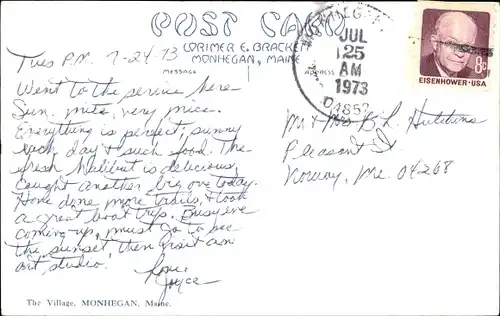 POST CARD
LORIMER E. BRACKETT
MONHEGAN, MAINE
MESSAGE
ADDRESS
Tues P.M. 7-24-73
Went to the service here
Sun. nite, very nice.
Everything is perfect, sunny
each day & such food. The
fresh Halibut is delicious,
caught another big one today.
Have done more trails, & took
a great boat trip. Busy eve
coming-up, must go to see
the sunset, then visit an
art studio.
Love
Joyce
The Village, MONHEGAN, Maine.
JUL
25
AM
1973
04852
EISENHOWER·USA
8c
Mr & Mrs B. L. Hutchins
Pleasant St
Norway, Me. 04268